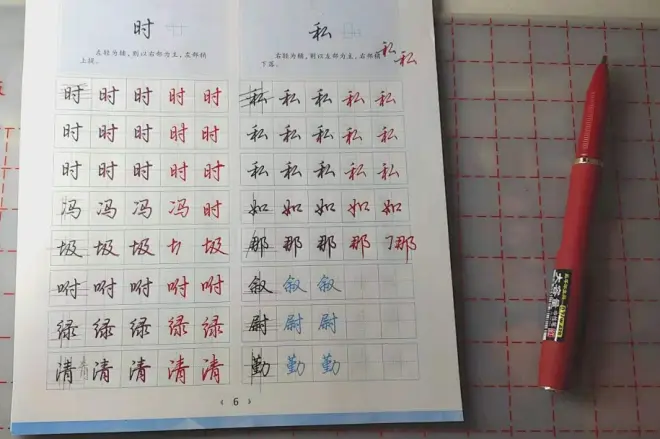 时
私
左轻为辅，则以右部为主，左部稍
上提。
右轻为辅，则以左部为主，右部稍
下落。
私 私
时 时 时 时 时
私 私 私 私 私
时 时 时 时 时
私 私 私 私 私
时 时 时 时 时
私 私 私 私 私
冯 冯 冯 冯 时
如 如 如 如 如
圾 圾 圾 圾
那 那 那 那 那
咐 咐 咐 咐 咐
叙 叙 叙
绿 绿 绿 绿 绿
尉 尉 尉
清 清 清 清 清 清
勤 勤 勤
《 6 》